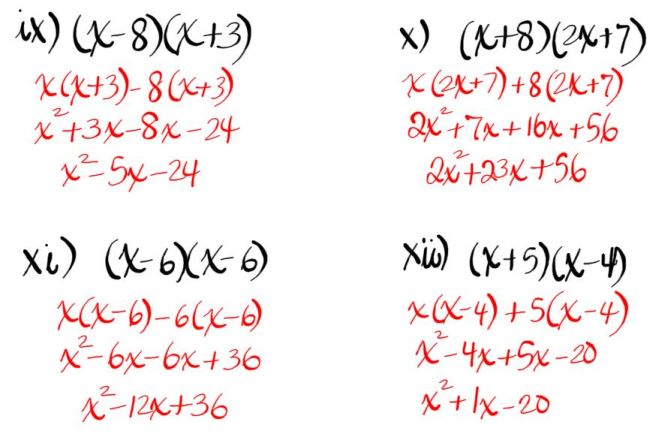 ix) (x-8)(x+3)
x(x+3)-8(x+3)
x²+3x-8x-24
x²-5x-24
x) (x+8)(2x+7)
x(2x+7)+8(2x+7)
2x²+7x+16x+56
2x²+23x+56
xi) (x-6)(x-6)
x(x-6)-6(x-6)
x²-6x-6x+36
x²-12x+36
xii) (x+5)(x-4)
x(x-4)+5(x-4)
x²-4x+5x-20
x²+1x-20